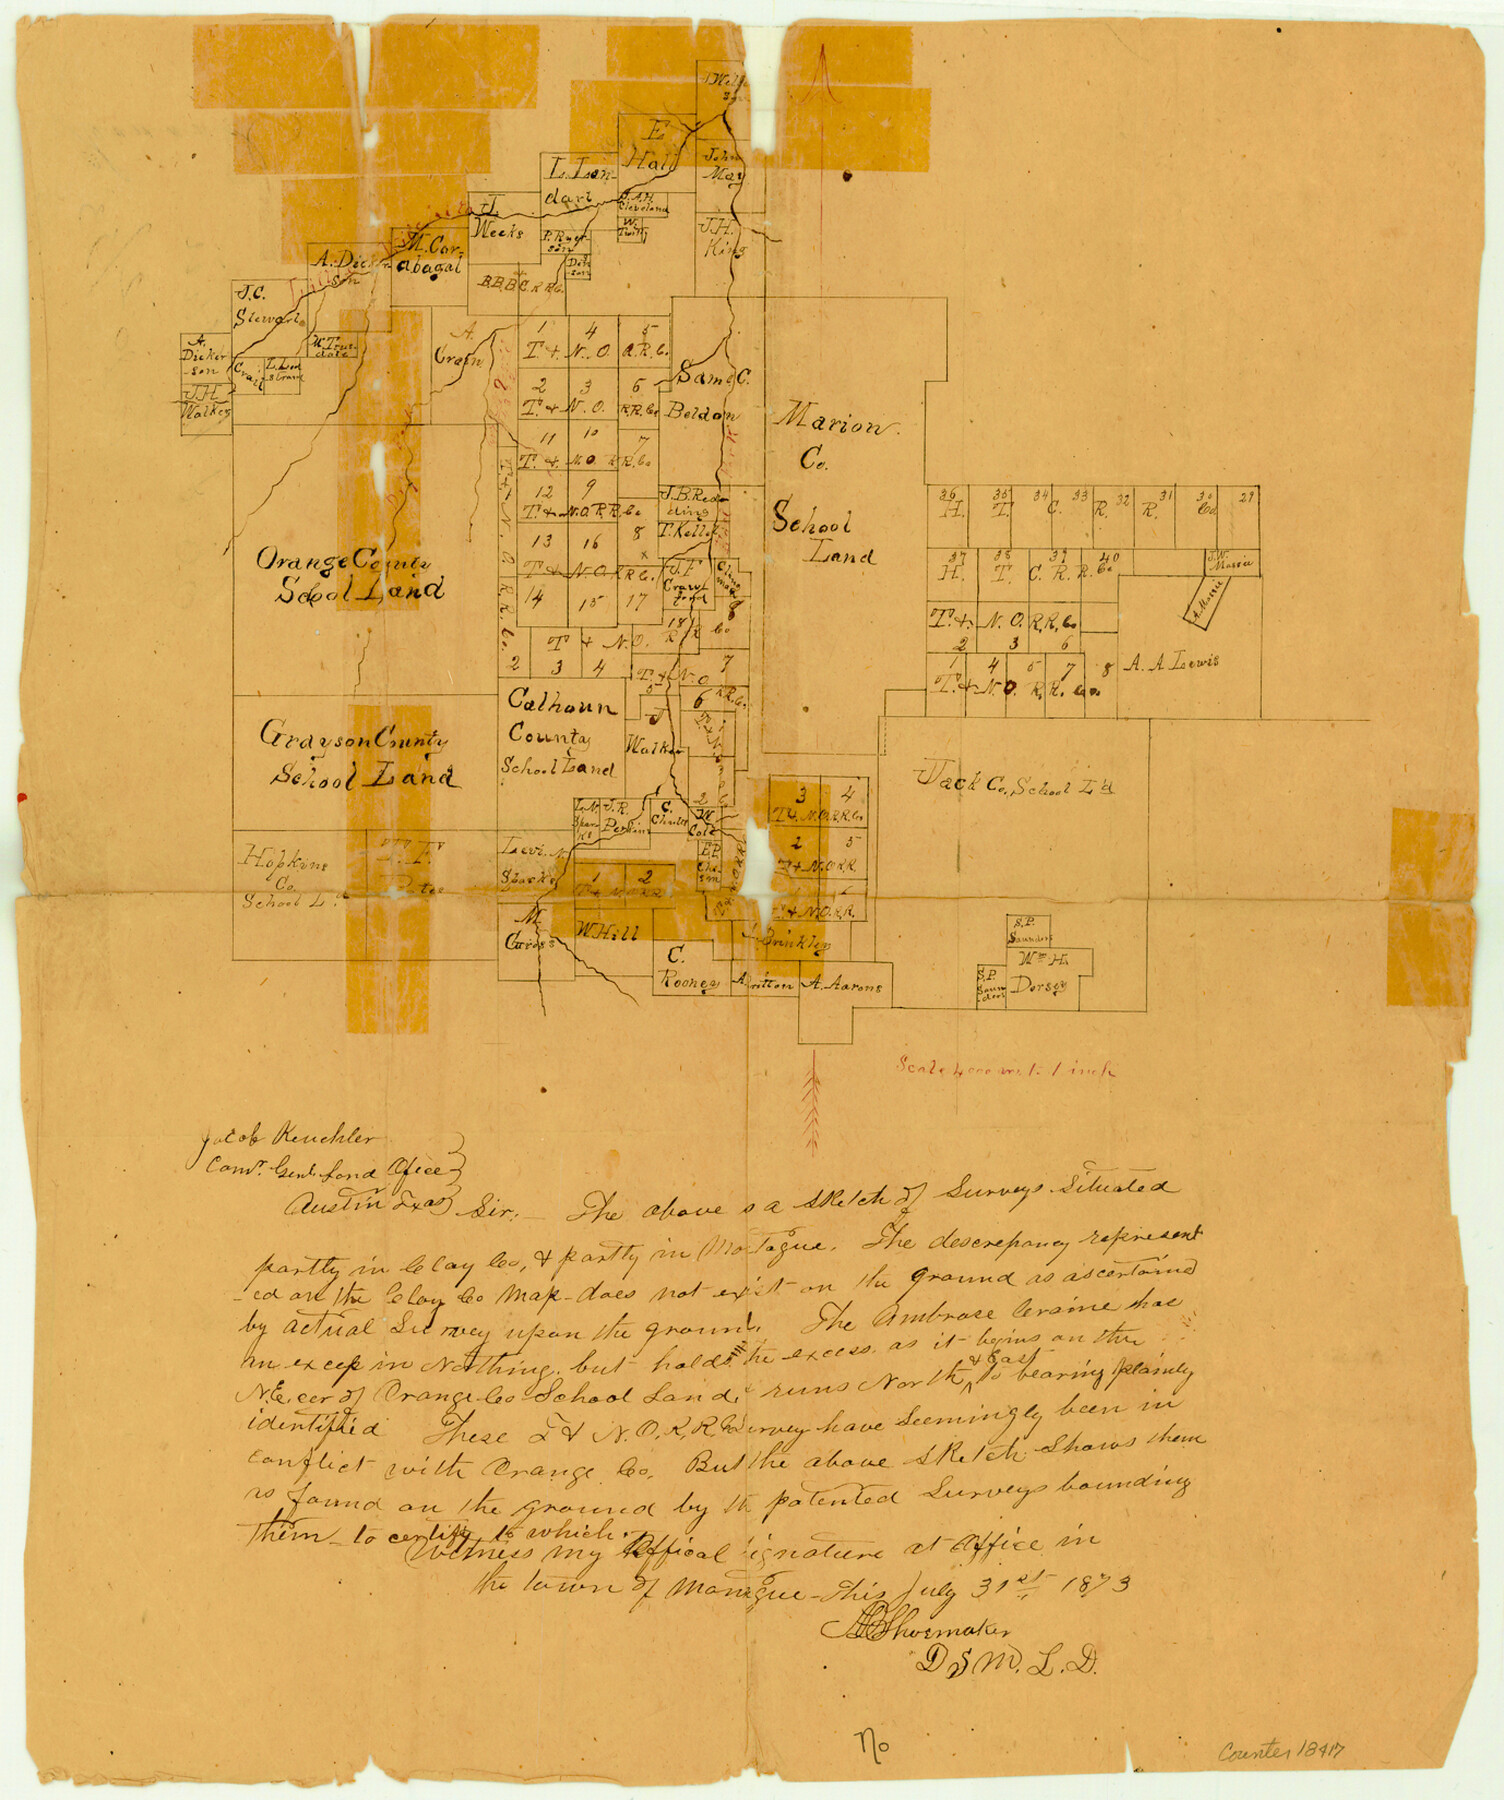 E
Hall
John
May
L. Lan-
darl
A. H.
Cleveland
W.
J. H.
King
J.
Weeks
M. Car-
abagal
A. Dick
son
B.B.B.C. R R Co.
J. C.
Stewart
A.
Dicker
-son
J. H.
Walker
A.
Crain
1 4 5
T. & N. O. R. R. Co.
2 3 6
T. & N. O. R.R. Co
11 10 7
T. & N. O. R R. Co
12 9
T. & N. O. R. R. Co
13 16 8
T & N. O. R R Co.
14 15 17
18
T & N. O. R R Co
2 3 4
T. & N. O. R. R. Co.
T. & N O 7
5 6 R R. Co.
8
Saml C.
Beldon
Marion
Co.
School
Land
J. B. Red
ding
T. Keller
J. F.
Craw
ford
36 35 34 33 32 31 30 29
H. T. C. R. R. Co.
37 38 39 40
H. T. C. R. R. Co
J. W.
Massie
A. Massie
T. & N. O. R. R. Co
2 3 6
1 4 5 7 8
T. & N. O. R. R. Co.
A. A Lewis
Orange County
School Land
Grayson County
School Land
Calhoun
County
School Land
J
Walker
Hopkins
Co.
School L.d
J. R.
Perkin
C.
Charles
2
W
Cole
E P
Chi-
sm
Levi N.
Sparks
1 2
T & N. O R R
3 4
T & N. O. R. R. Co
2 5
T & N. O R R.
6
T. & N. O. R. R.
Jack Co. School Ld
M
Gross
W. Hill
C.
Rooney
Brinkley
A. Britton
A. Aarons
S. P.
Saunders
Wm H.
Dorsey
S. P.
Saun
ders
Scale 4000 vrs. to 1 inch
Jacob Keuchler
Comr. Genl. Land Office
Austin Texas Sir. — The above is a sketch of Surveys situated
partly in Clay Co, & partly in Montague. The descrepancy represent
-ed on the Clay Co Map - does not exist on the ground as ascertained
by actual Survey upon the ground. The Ambrose Craine has
an excep in Northing, but holds the excess as it begins on the
N.E. cor of Orange Co School Land, & runs North & East to bearing plainly
identified These T & N. O. R. R Co Survey have seemingly been in
conflict with Orange Co. But the above sketch shows them
as found on the ground by the patented Surveys bounding
them - to certify to which.
Witness my Official Signature at Office in
the town of Montague - This July 31st 1873
Shoemaker
D S M. L. D.
No
Counter 18417